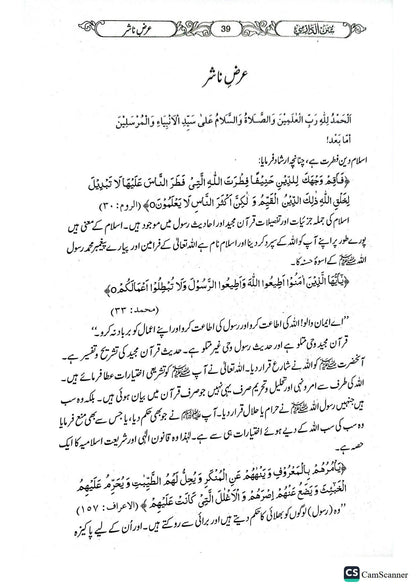 سُنن الدَّارمِی 39 عرضِ ناشر
عرضِ ناشر
اَلْحَمْدُ لِلّٰهِ رَبِّ الْعٰلَمِيْنَ وَالصَّلَاةُ وَالسَّلَامُ عَلٰى سَيِّدِ الْاَنْبِيَاءِ وَالْمُرْسَلِيْنَ
اَمَّا بَعْد!
اسلام دین فطرت ہے، چنانچہ ارشاد فرمایا:
﴿فَاَقِمْ وَجْهَكَ لِلدِّيْنِ حَنِيْفًا فِطْرَتَ اللّٰهِ الَّتِيْ فَطَرَ النَّاسَ عَلَيْهَا لَا تَبْدِيْلَ
لِخَلْقِ اللّٰهِ ذٰلِكَ الدِّيْنُ الْقَيِّمُ وَ لٰكِنَّ اَكْثَرَ النَّاسِ لَا يَعْلَمُوْنَo﴾ (الروم: ٣٠)
اسلام کی جملہ جزئیات اور تفصیلات قرآن مجید اور احادیث رسول میں موجود ہیں۔ اسلام کے معنی ہیں
پورے طور پر اپنے آپ کو اللہ کے سپرد کر دینا اور اسلام نام ہے اللہ تعالیٰ کے فرامین اور پیارے پیغمبر محمد رسول
اللہ ﷺ کے اسوۂ حسنہ کا۔
﴿يٰٓاَيُّهَا الَّذِيْنَ اٰمَنُوْا اَطِيْعُوا اللّٰهَ وَاَطِيْعُوا الرَّسُوْلَ وَلَا تُبْطِلُوْا اَعْمَالَكُمْo﴾
(محمد: ٣٣)
”اے ایمان والو! اللہ کی اطاعت کرو اور رسول کی اطاعت کرو اور اپنے اعمال کو برباد نہ کرو۔“
قرآن مجید وحی متلو ہے اور حدیث رسول وحی غیر متلو ہے۔ حدیث قرآن مجید کی تشریح و تفسیر ہے۔
آنحضرت ﷺ کو اللہ نے شارع قرار دیا۔ اللہ تعالیٰ نے آپ ﷺ کو تشریعی اختیارات عطا فرمائے ہیں۔
اللہ کی طرف سے امر و نہی اور تحلیل و تحریم صرف یہی نہیں جو صرف قرآن میں بیان ہوئی ہیں۔ بلکہ وہ سب
ہیں جنہیں رسول اللہ نے حرام یا حلال قرار دیا۔ آپ ﷺ نے جو بھی حکم دیا، یا جس سے بھی منع فرمایا
وہ سب کی سب اللہ کے دیے ہوئے اختیارات ہی سے ہے۔ لہٰذا وہ قانون الٰہی اور شریعت اسلامیہ کا ایک
حصہ ہے۔
﴿يَاْمُرُهُمْ بِالْمَعْرُوْفِ وَ يَنْهٰهُمْ عَنِ الْمُنْكَرِ وَ يُحِلُّ لَهُمُ الطَّيِّبٰتِ وَ يُحَرِّمُ عَلَيْهِمُ
الْخَبٰٓئِثَ وَ يَضَعُ عَنْهُمْ اِصْرَهُمْ وَ الْاَغْلٰلَ الَّتِيْ كَانَتْ عَلَيْهِمْ﴾ (الاعراف: ١٥٧)
”وہ (رسول) لوگوں کو بھلائی کا حکم دیتے ہیں اور برائی سے روکتے ہیں۔ اور اُن کے لیے پاکیزہ
CS CamScanner